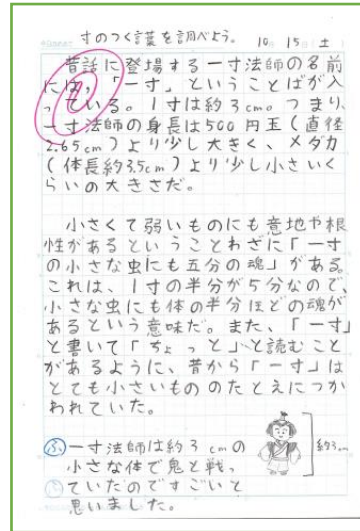 寸のつく言葉を調べよう。 10月 15日(土)
昔話に登場する一寸法師の名前
には,「一寸」ということばが入
っている。1寸は約3cm。つまり,
一寸法師の身長は500円玉(直径
2.65cm)より少し大きく、メダカ
(体長約3.5cm)より少し小さいく
らいの大きさだ。
小さくて弱いものにも意地や根
性があるということわざに「一寸
の小さな虫にも五分の魂」がある。
これは、1寸の半分が5分なので、
小さな虫にも体の半分ほどの魂が
あるという意味だ。また、「一寸」
と書いて「ちょっと」と読むこと
があるように、昔から「一寸」は
とても小さいもののたとえにつか
われていた。
ふ 一寸法師は約3cmの
小さな体で鬼と戦っ
ていたのですごいと
思いました。
約3cm